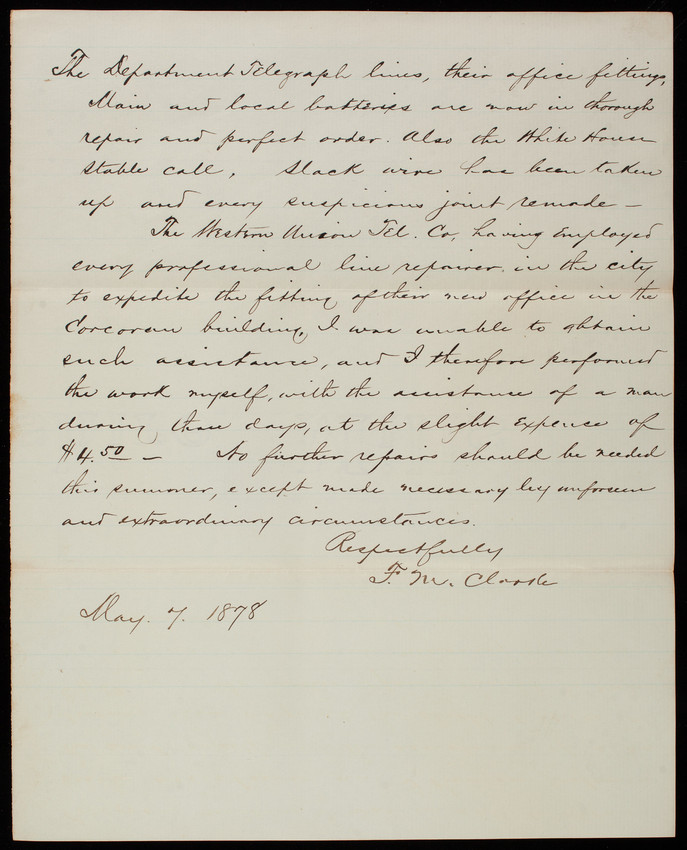 The Department Telegraph lines, their office fittings,
Main and local batteries are now in thorough
repair and perfect order. Also the White House
stable call, Slack wire has been taken
up and every suspicious joint remade –
The Western Union Tel. Co, having employed
every professional line repairer in the city
to expedite the fitting of their new office in the
Corcoran building, I was unable to obtain
such assistance, and I therefore performed
the work myself, with the assistance of a man
during three days, at the slight expense of
$4.50 – No further repairs should be needed
this summer, except made necessary by unforseen
and extraordinary circumstances.
Respectfully
F. M. Clarke
May. 7. 1878